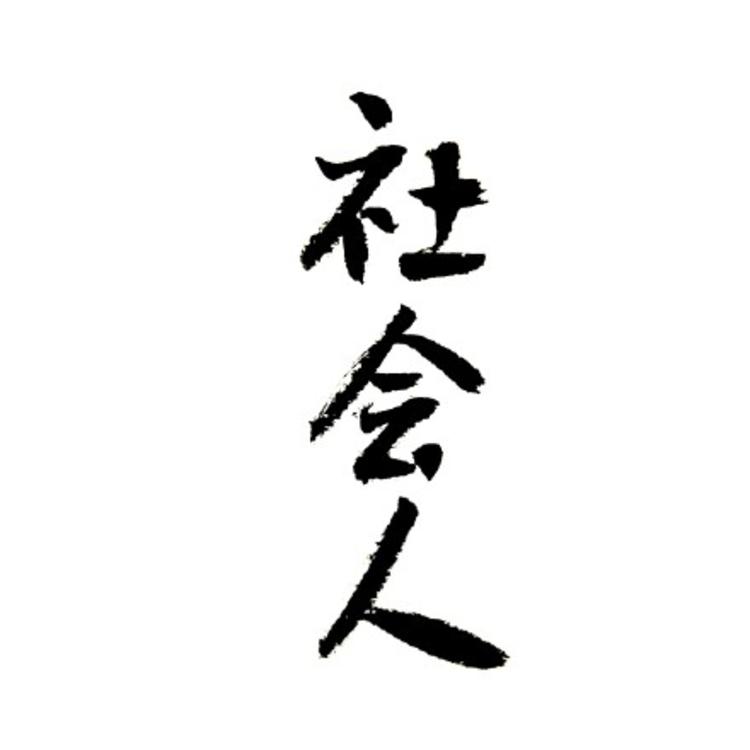 社会人